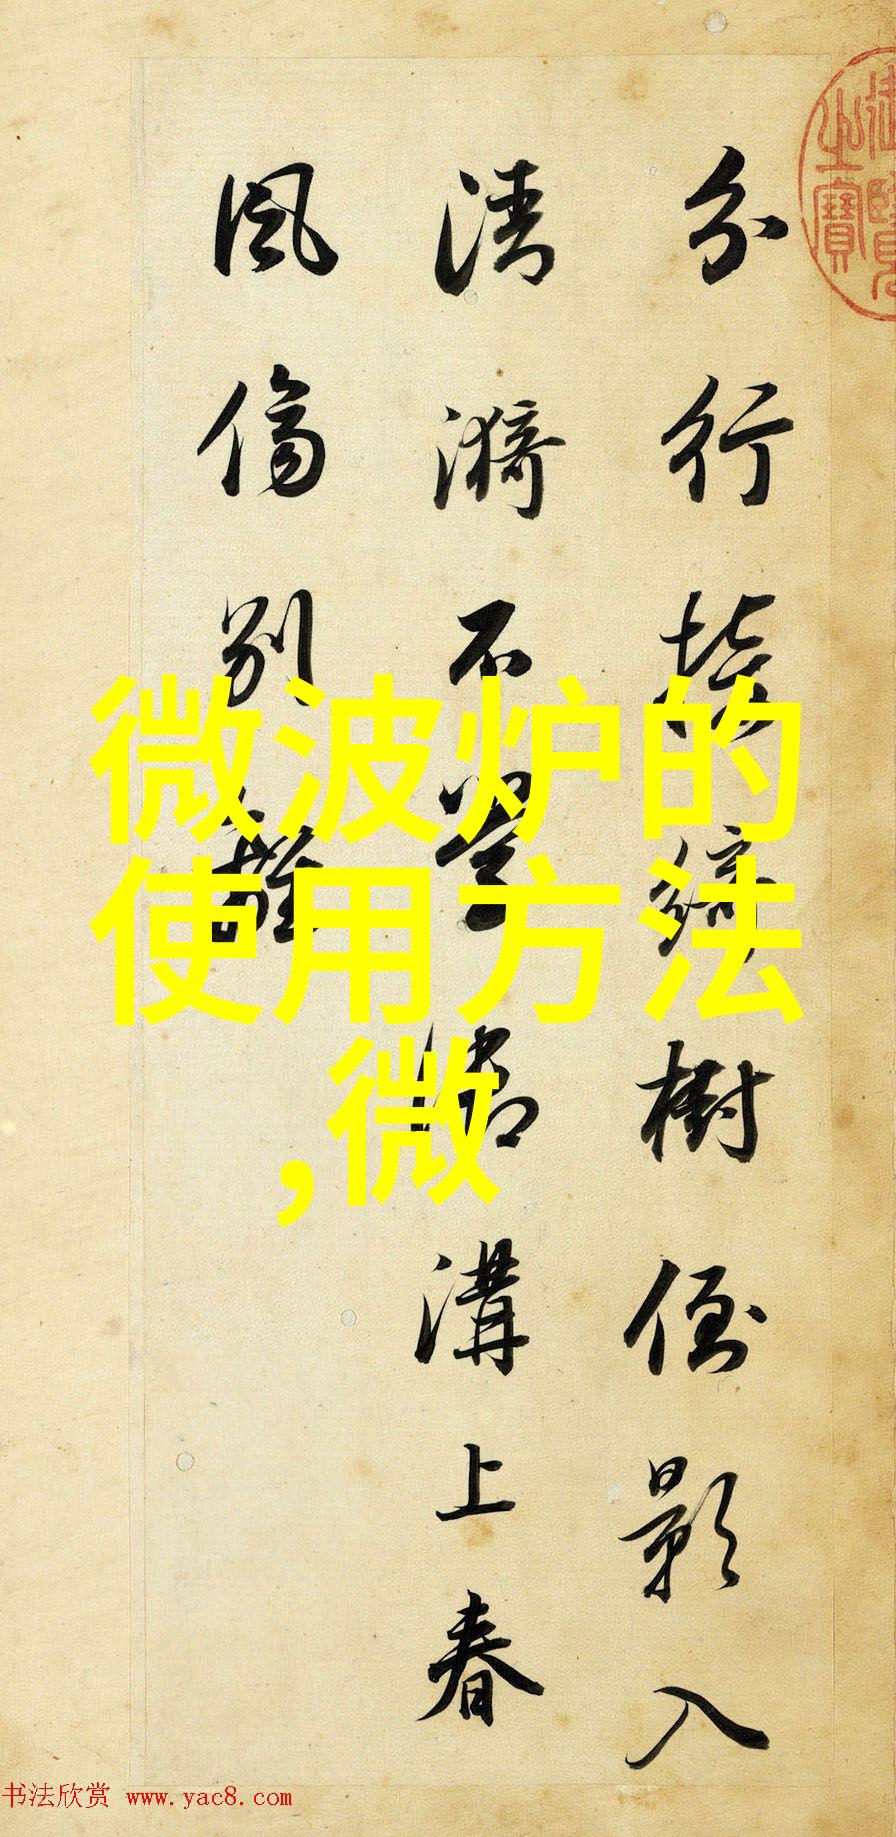 分行接綺樹倒影入
清漪不學御溝上春
風傷別離
之寶
微波炉的
使用方法
,微
书法欣赏 www.yac8.com